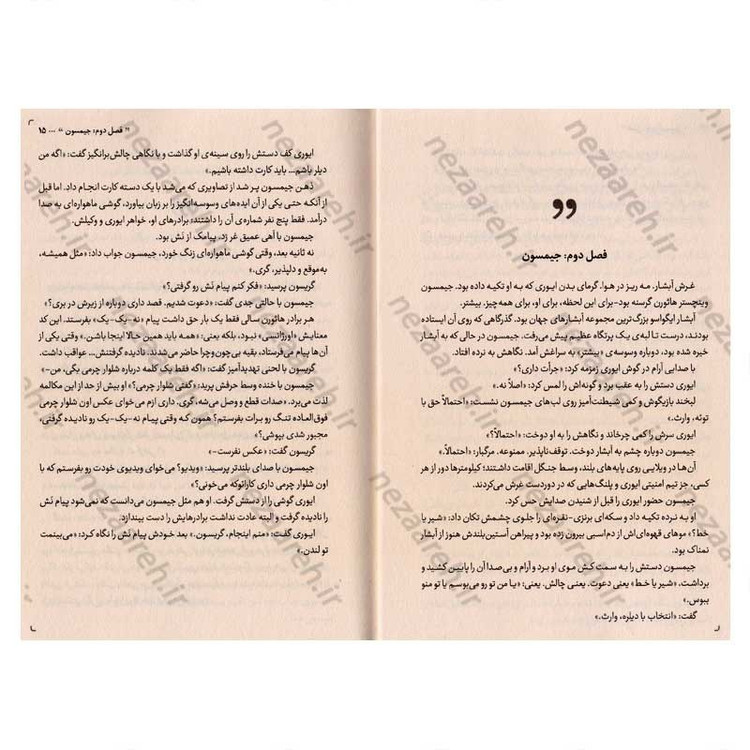 ”
فصل دوم: جیمسون
غرش آبشار. مه ریز در هوا. گرمای بدن ایوری که به او تکیه داده بود. جیمسون
وینچستر هاثورن گرسنه بود-برای این لحظه، برای او، برای همه‌چیز. بیشتر.
آبشار ایگواسو بزرگ‌ترین مجموعه آبشارهای جهان بود. گذرگاهی که روی آن ایستاده
بودند، درست تا لبه‌ی یک پرتگاه عظیم پیش می‌رفت. جیمسون در حالی که به آبشار
خیره شده بود، دوباره وسوسه‌ی «بیشتر» به سراغش آمد. نگاهش به نرده افتاد.
با صدایی آرام در گوش ایوری زمزمه کرد: «جرأت داری؟»
ایوری دستش را به عقب برد و گونه‌اش را لمس کرد: «اصلاً نه.»
لبخند بازیگوش و کمی شیطنت‌آمیز روی لب‌های جیمسون نشست: «احتمالاً حق با
توئه، وارث.»
ایوری سرش را کمی چرخاند و نگاهش را به او دوخت: «احتمالاً؟»
جیمسون دوباره چشم به آبشار دوخت. توقف‌ناپذیر. ممنوعه. مرگبار: «احتمالاً.»
آن‌ها در ویلایی روی پایه‌های بلند، وسط جنگل اقامت داشتند؛ کیلومترها دور از هر
کسی، جز تیم امنیتی ایوری و پلنگ‌هایی که در دوردست غرش می‌کردند.
جیمسون حضور ایوری را قبل از شنیدن صدایش حس کرد.
او به نرده تکیه داد و سکه‌ای برنزی-نقره‌ای را جلوی چشمش تکان داد: «شیر یا
خط؟» موهای قهوه‌ای‌اش از دم‌اسبی بیرون زده بود و پیراهن آستین‌بلندش هنوز از آبشار
نمناک بود.
جیمسون دستش را به سمت کش موی او برد و آرام و بی‌صدا آن را پایین کشید و
برداشت. «شیر یا خط» یعنی دعوت. یعنی چالش. یعنی: «یا من تو رو می‌بوسم یا تو منو
ببوس.»
گفت: «انتخاب با دیلره، وارث.»
” فصل دوم: جیمسون “ ... ۱۵
ایوری کف دستش را روی سینه‌ی او گذاشت و با نگاهی چالش‌برانگیز گفت: «اگه من
دیلر باشم... باید کارت داشته باشیم.»
ذهن جیمسون پر شد از تصاویری که می‌شد با یک دسته کارت انجام داد. اما قبل
از آنکه حتی یکی از آن ایده‌های وسوسه‌انگیز را بر زبان بیاورد، گوشی ماهواره‌ای به صدا
درآمد. فقط پنج نفر شماره‌ی آن را داشتند: برادرهای او، خواهر ایوری و وکیلش.
جیمسون با آهی عمیق غر زد. پیامک از نَش بود.
نه ثانیه بعد، وقتی گوشی ماهواره‌ای زنگ خورد، جیمسون جواب داد: «مثل همیشه،
به‌موقع و دلپذیر، گری.»
گریسون پرسید: «فکر کنم پیام نَش رو گرفتی؟»
جیمسون با حالتی جدی گفت: «دعوت شدیم. قصد داری دوباره از زیرش در بری؟»
هر برادر هاثورن سالی فقط یک بار حق داشت پیام «نه-یک-یک» بفرستد. این کد
معنایش «اورژانسی» نبود، بلکه یعنی: «همه باید همین حالا اینجا باشن.» وقتی یکی از
آن‌ها پیام می‌فرستاد، بقیه بی‌چون‌وچرا حاضر می‌شدند. نادیده گرفتنش... عواقب داشت.
گریسون با لحنی تهدیدآمیز گفت: «اگه فقط یک کلمه درباره شلوار چرمی بگی، من-»
جیمسون با خنده وسط حرفش پرید: «گفتی شلوار چرمی؟» او بیش از حد از این مکالمه
لذت می‌برد. «صدات قطع و وصل می‌شه، گری. داری ازم می‌خوای عکس اون شلوار چرمی
فوق‌العاده تنگ رو برات بفرستم؟ همون که وقتی پیام نه-یک-یک رو نادیده گرفتی،
مجبور شدی بپوشی؟»
گریسون گفت: «عکس نفرست-»
جیمسون با صدای بلندتر پرسید: «ویدیو؟ می‌خوای ویدیوی خودت رو بفرستم که با
اون شلوار چرمی داری کارائوکه می‌خونی؟»
ایوری گوشی را از دستش گرفت. او هم مثل جیمسون می‌دانست که نمی‌شود پیام نَش
را نادیده گرفت و البته عادت نداشت برادرهایش را دست بیندازد.
ایوری گفت: «منم اینجام، گریسون.» بعد خودش پیام نَش را نگاه کرد: «می‌بینمت
تو لندن.»
nezaareh.ir